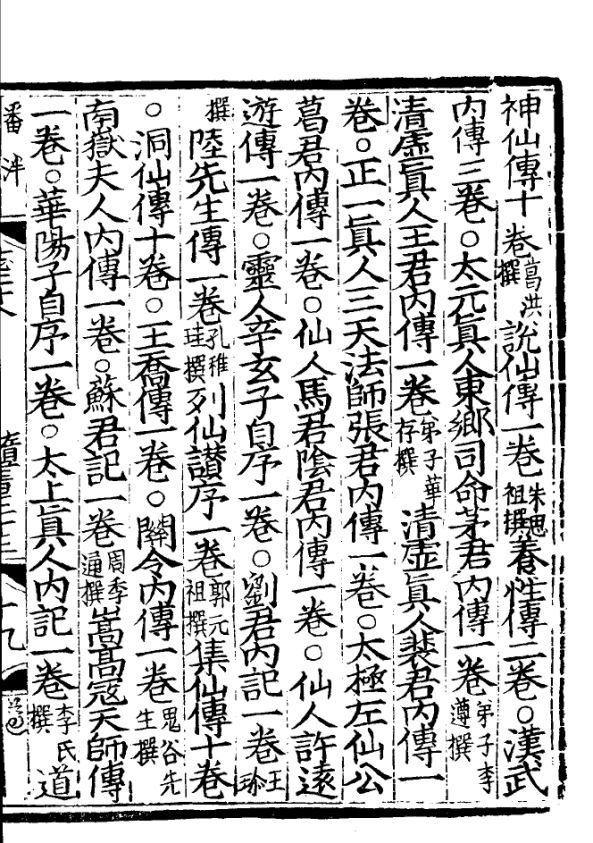 神仙傳十卷葛洪撰說仙傳一卷朱思祖撰養性傳二卷○漢武
内傳三卷○太元眞人東鄉司命茅君内傳一卷弟子李遵撰
清虛眞人王君内傳一卷弟子華存撰清虛眞人裴君内傳一
卷○正一眞人三天法師張君内傳一卷○太極左仙公
葛君内傳一卷○仙人馬君陰君内傳一卷○仙人許遠
遊傳一卷○靈人辛玄子自序一卷○劉君内記一卷王珎
撰陸先生傳一卷孔稚珪撰列仙讃序一卷郭元祖撰集仙傳十卷
○洞仙傳十卷○王喬傳一卷○關令内傳一卷鬼谷先生撰
南嶽夫人内傳一卷○蘇君記一卷周季通撰嵩髙宼天師傳
一卷○華陽子自序一卷○太上眞人内記一卷李氏撰道
隋書三十三
十九